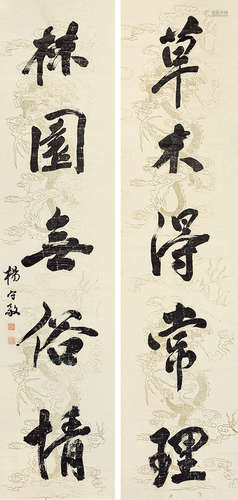 草木得常理
林園無俗情
楊守敬